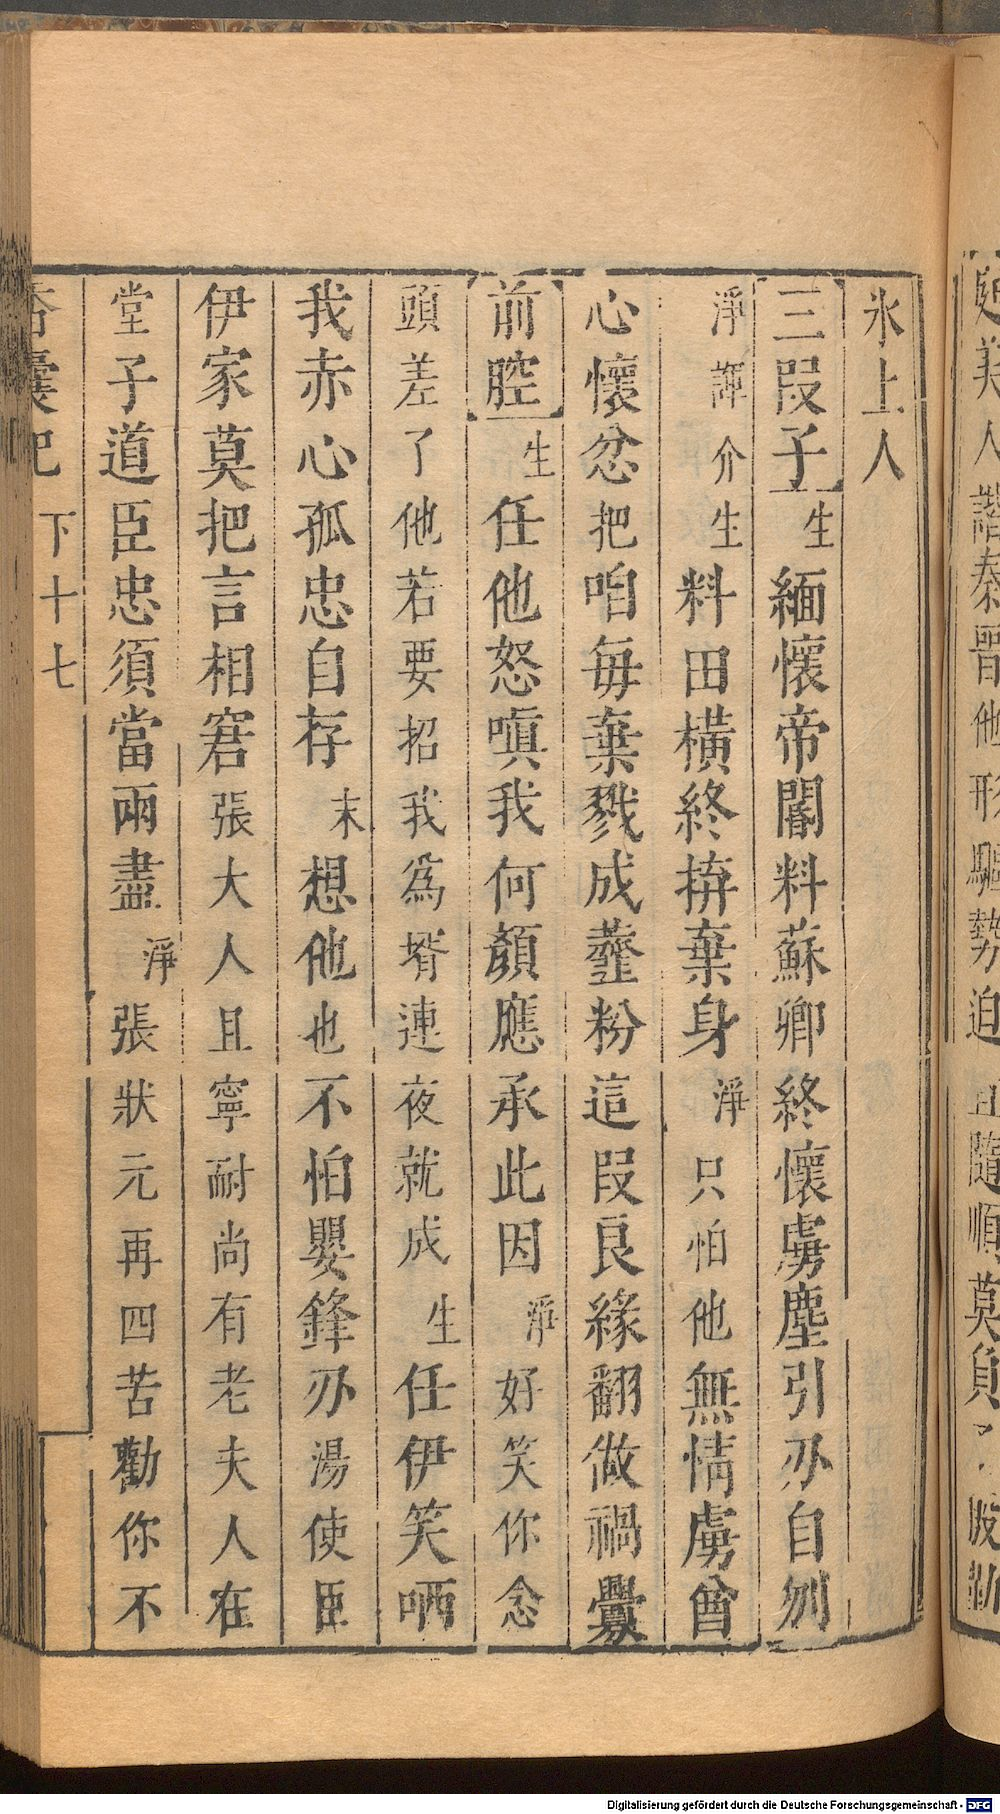 氷上人
三段子生緬懷帝闕料蘇卿終懷虜塵引刅自刎
淨諢介生料田橫終拚棄身淨只怕他無情虜酋
心懷忿把咱每棄戮成虀粉這段良緣翻做禍釁
前腔生任他怒嗔我何顏應承此因淨好笑你念
頭差了他若要招我爲壻連夜就成生任伊笑哂
我赤心孤忠自存末想他也不怕嬰鋒刅湯使臣
伊家莫把言相窘張大人且寧耐尚有老夫人在
堂子道臣忠須當兩盡淨張狀元再四苦勸你不
香囊記 下十七
處美人諧秦晉他形驅勢迫且隨順莫負
Digitalisierung gefördert durch die Deutsche Forschungsgemeinschaft - DFG